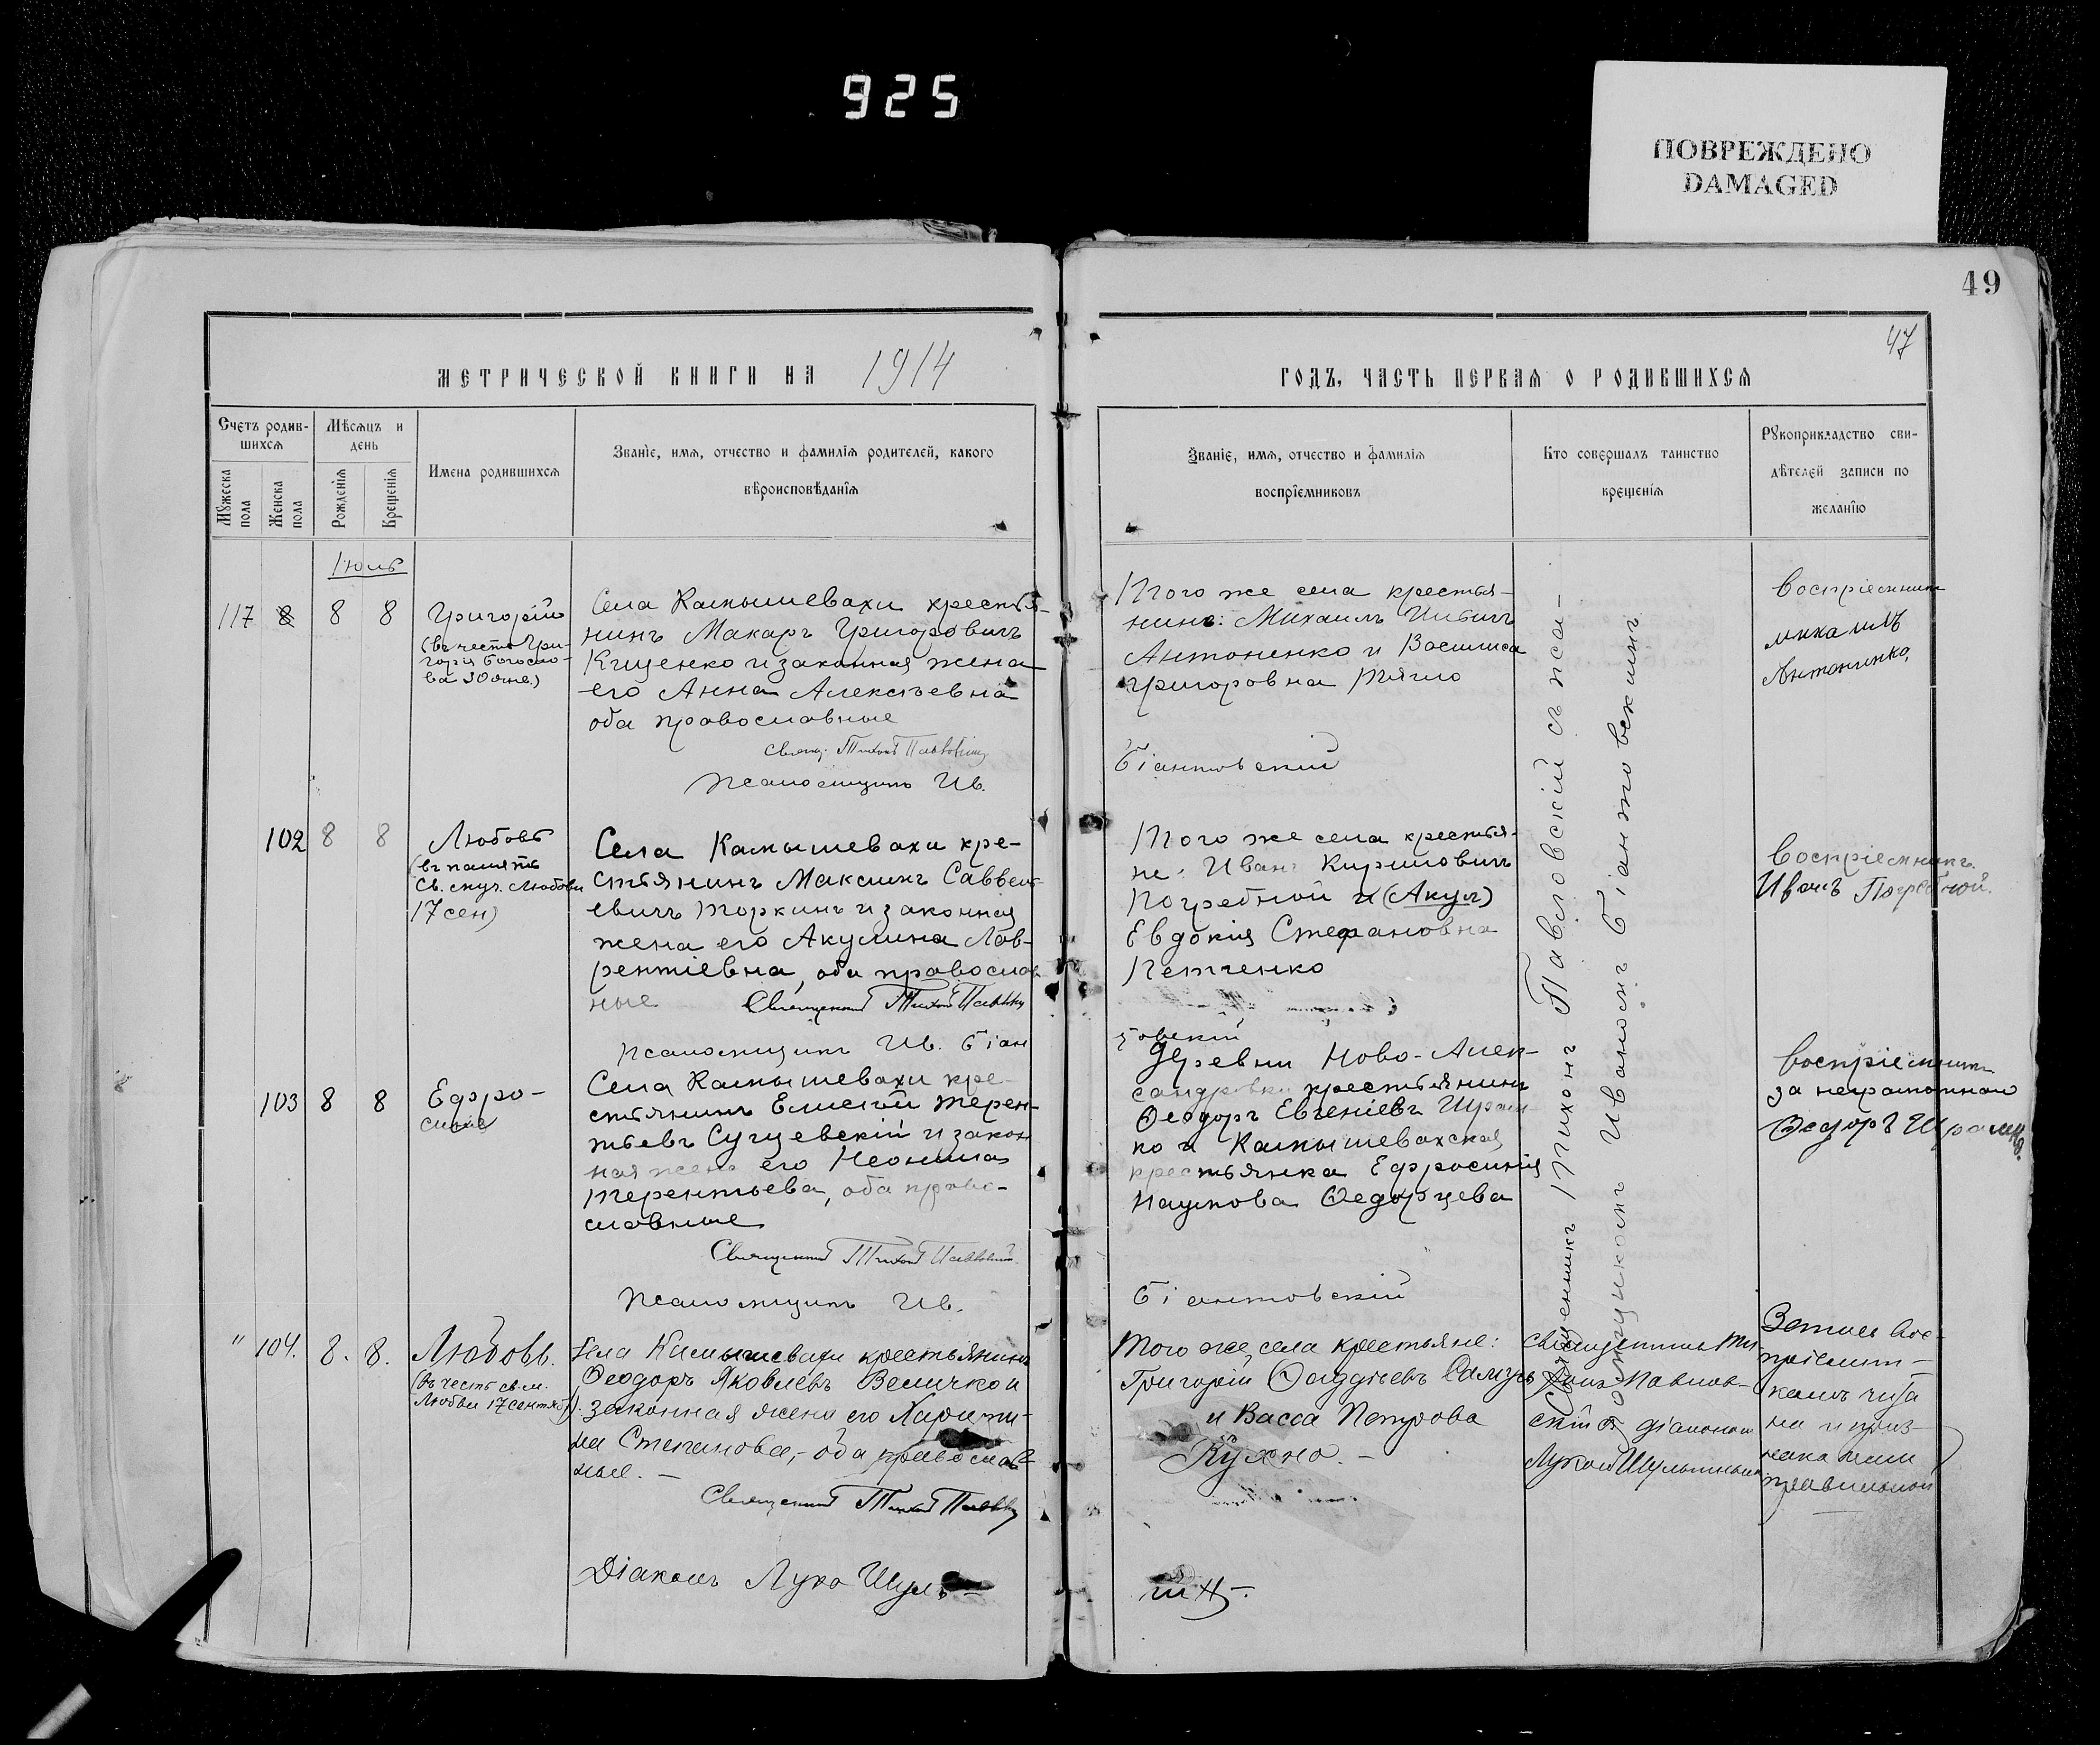 925
ПОВРЕЖДЕНО
DAMAGED
49
47
МЕТРИЧЕСКОЙ КНИГИ НА 1914
ГОДЪ, ЧАСТЬ ПЕРВАЯ О РОДИВШИХСЯ
Счетъ родив-
шихся
Мужеска пола
Женска пола
Мѣсяцъ и
день
Рожденія
Крещенія
Имена родившихся
Званіе, имя, отчество и фамилія родителей, какого
вѣроисповѣданія
Званіе, имя, отчество и фамилія
воспріемниковъ
Кто совершалъ таинство
крещенія
Рукоприкладство сви-
дѣтелей записи по
желанію
Іюль
117 8 8
Григорій
(въ честь Гри-
горія Богосло-
ва 30 янв.)
Села Камышевахи крестья-
нинъ Макаръ Григоровичъ
Киценко и законная жена
его Анна Алексѣевна
оба православные
Священ. Тихонъ Павловскій
Псаломщикъ Ив.
Того же села крестья-
нинъ: Михаилъ
Антоненко и Василиса
Григоровна Тягло
Біантовскій
Воспріемникъ
Михаилъ
Антоненко,
102 8 8
Любовь
(въ память
Св. муч. Любови
17 сен)
Села Камышевахи кре-
стьянинъ Максимъ Саввель-
евичъ Торкинъ и законная
жена его Акулина Лав-
рентіевна, оба православ
ные
Священникъ Тихонъ Павловскій
Псаломщикъ Ив. Біан
Того же села крестья-
не: Иванъ Кириловичъ
Погребной и (Акул)
Евдокія Стефановна
Петченко
товскій
Воспріемникъ
Иванъ Погребной.
103 8 8
Ефро-
синія
Села Камышевахи кре-
стьянинъ Елисей Терен-
тьевъ Сущевскій и закон
ная жена его Неонила
Терентьева, оба право-
славные
Священникъ Тихонъ Павловскій
Псаломщикъ Ив.
Деревни Ново-Алек-
сандровки крестьянинъ
Ѳеодоръ Евгеніевъ Шрам
ко и Камышевахская
крестьянка Ефросинія
Наумова Ѳедорцева
Біантовскій
Воспріемникъ
за неграмотнаго
Ѳедоръ Шрамко.
Священникъ Тихонъ Павловскій съ пса-
ломщикомъ Иваномъ Біантовскимъ
" 104. 8. 8.
Любовь.
(Въ честь св. м.
Любви 17 сентяб.)
Села Камышевахи крестьянинъ
Ѳеодоръ Яковлевъ Величко и
законная жена его Харити-
на Степанова,- оба православ-
ные. —
Священникъ Тихонъ Павловскій
Діаконъ Лука Шуль-
Того же села крестьяне:
Григорій Ѳаддѣевъ
и Васса Петрова
Кухно. —
Священникъ Ти
хонъ Павлов-
скій съ діакономъ
Лукою
Запись вос-
пріемни-
камъ чита
на и приз-
нана ими
правильной